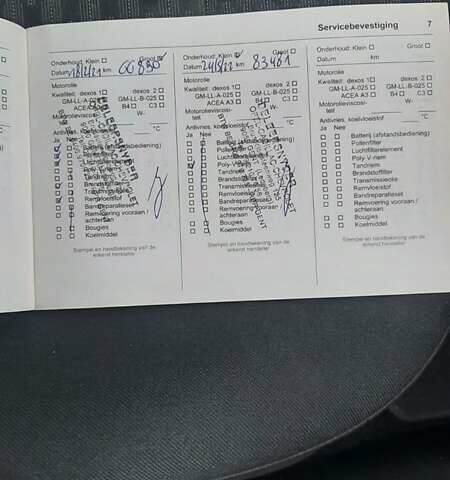 Servicebevestiging 7
Onderhoud: Klein Groot
Datum 18/2/21 km 66850
Motorolie
Kwaliteit: dexos 1 dexos 2
GM-LL-A-025 GM-LL-B-025
ACEA A3 B4 C3
Motorolieviscosi- W-
teit
Antivries, koelvloeistof °C
Ja Nee
Batterij (afstandsbediening)
Pollenfilter
Luchtfilterelement
Poly-V-riem
Tandriem
Brandstoffilter
Transmissieolie
Remvloeistof
Bandreparatieset
Remvoering vooraan /
achteraan
Bougies
Koelmiddel
Stempel en handtekening van de
erkend hersteller
Onderhoud: Klein Groot
Datum 24/5/22 km 83481
Motorolie
Kwaliteit: dexos 1 dexos 2
GM-LL-A-025 GM-LL-B-025
ACEA A3 B4 C3
Motorolieviscosi- W-
teit
Antivries, koelvloeistof °C
Ja Nee
Batterij (afstandsbediening)
Pollenfilter
Luchtfilterelement
Poly-V-riem
Tandriem
Brandstoffilter
Transmissieolie
Remvloeistof
Bandreparatieset
Remvoering vooraan /
achteraan
Bougies
Koelmiddel
Stempel en handtekening van de
erkend hersteller
Onderhoud: Klein Groot
Datum km
Motorolie
Kwaliteit: dexos 1 dexos 2
GM-LL-A-025 GM-LL-B-025
ACEA A3 B4 C3
Motorolieviscosi- W-
teit
Antivries, koelvloeistof °C
Ja Nee
Batterij (afstandsbediening)
Pollenfilter
Luchtfilterelement
Poly-V-riem
Tandriem
Brandstoffilter
Transmissieolie
Remvloeistof
Bandreparatieset
Remvoering vooraan /
achteraan
Bougies
Koelmiddel
Stempel en handtekening van de
erkend hersteller